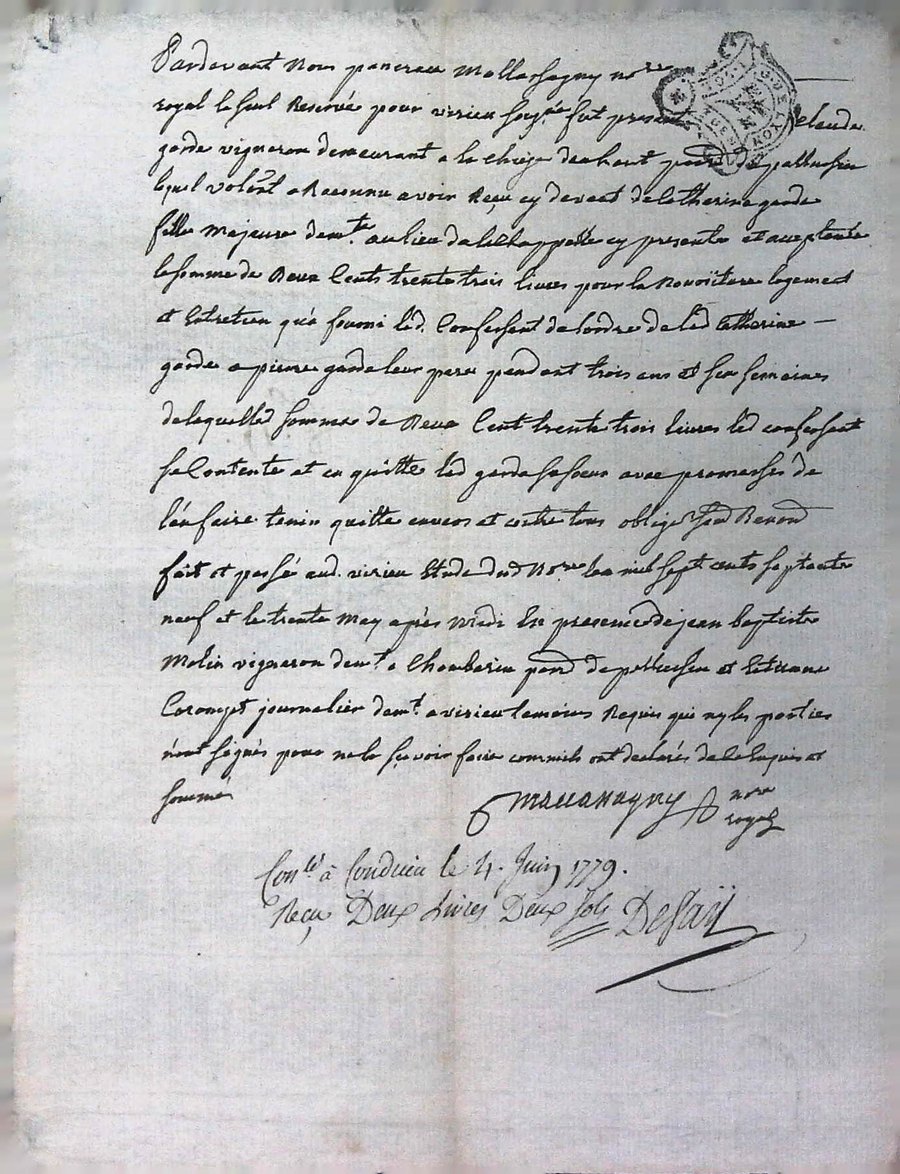 Pardevant Nous pancrau Mallassagny no.re
royal le seul Reservé pour virieu sousg.né fut present Claude
garde vigneron demeurant a la Chieze de hault par.sse de pellussin
lequel volont a Reconnu avoir Reçu cy devant de Catherine garde
fille Majeure dem.te au lieu de la Chappelle cy presente et acceptante
la somme de Deux Cents trente trois livres pour la Nourriture logement
et Entretien qu'a fourni led. Confessant de l'ordre de lad Catherine
garde a pierre garde leur pere pendant trois ans et six semaines
de laquelled somme de Deux Cent trente trois livres led confessant
se Contente et en quitte lad garde sa soeur avec promesses de
l'en faire tenir quitte envers et contre tous oblige
fait et passé aud. virieu Etude dud No.re l'an mil sept cents septante
neuf et le trente May après Midi En presence de jean baptiste
Molin vigneron dem.t a Chamberin par de pellussin et Estienne
journalier dem.t a virieu temoins Requis qui ny les parties
n'ont signés pour ne le sçavoir faire comme ils ont declarés de ce Enquis et
sommés
Mallassagny no.re
royal
Con.lé à Condrieu le 4. Juin 1779.
Reçu Deux Livres Deux sols Defaÿ
G. DE LYON